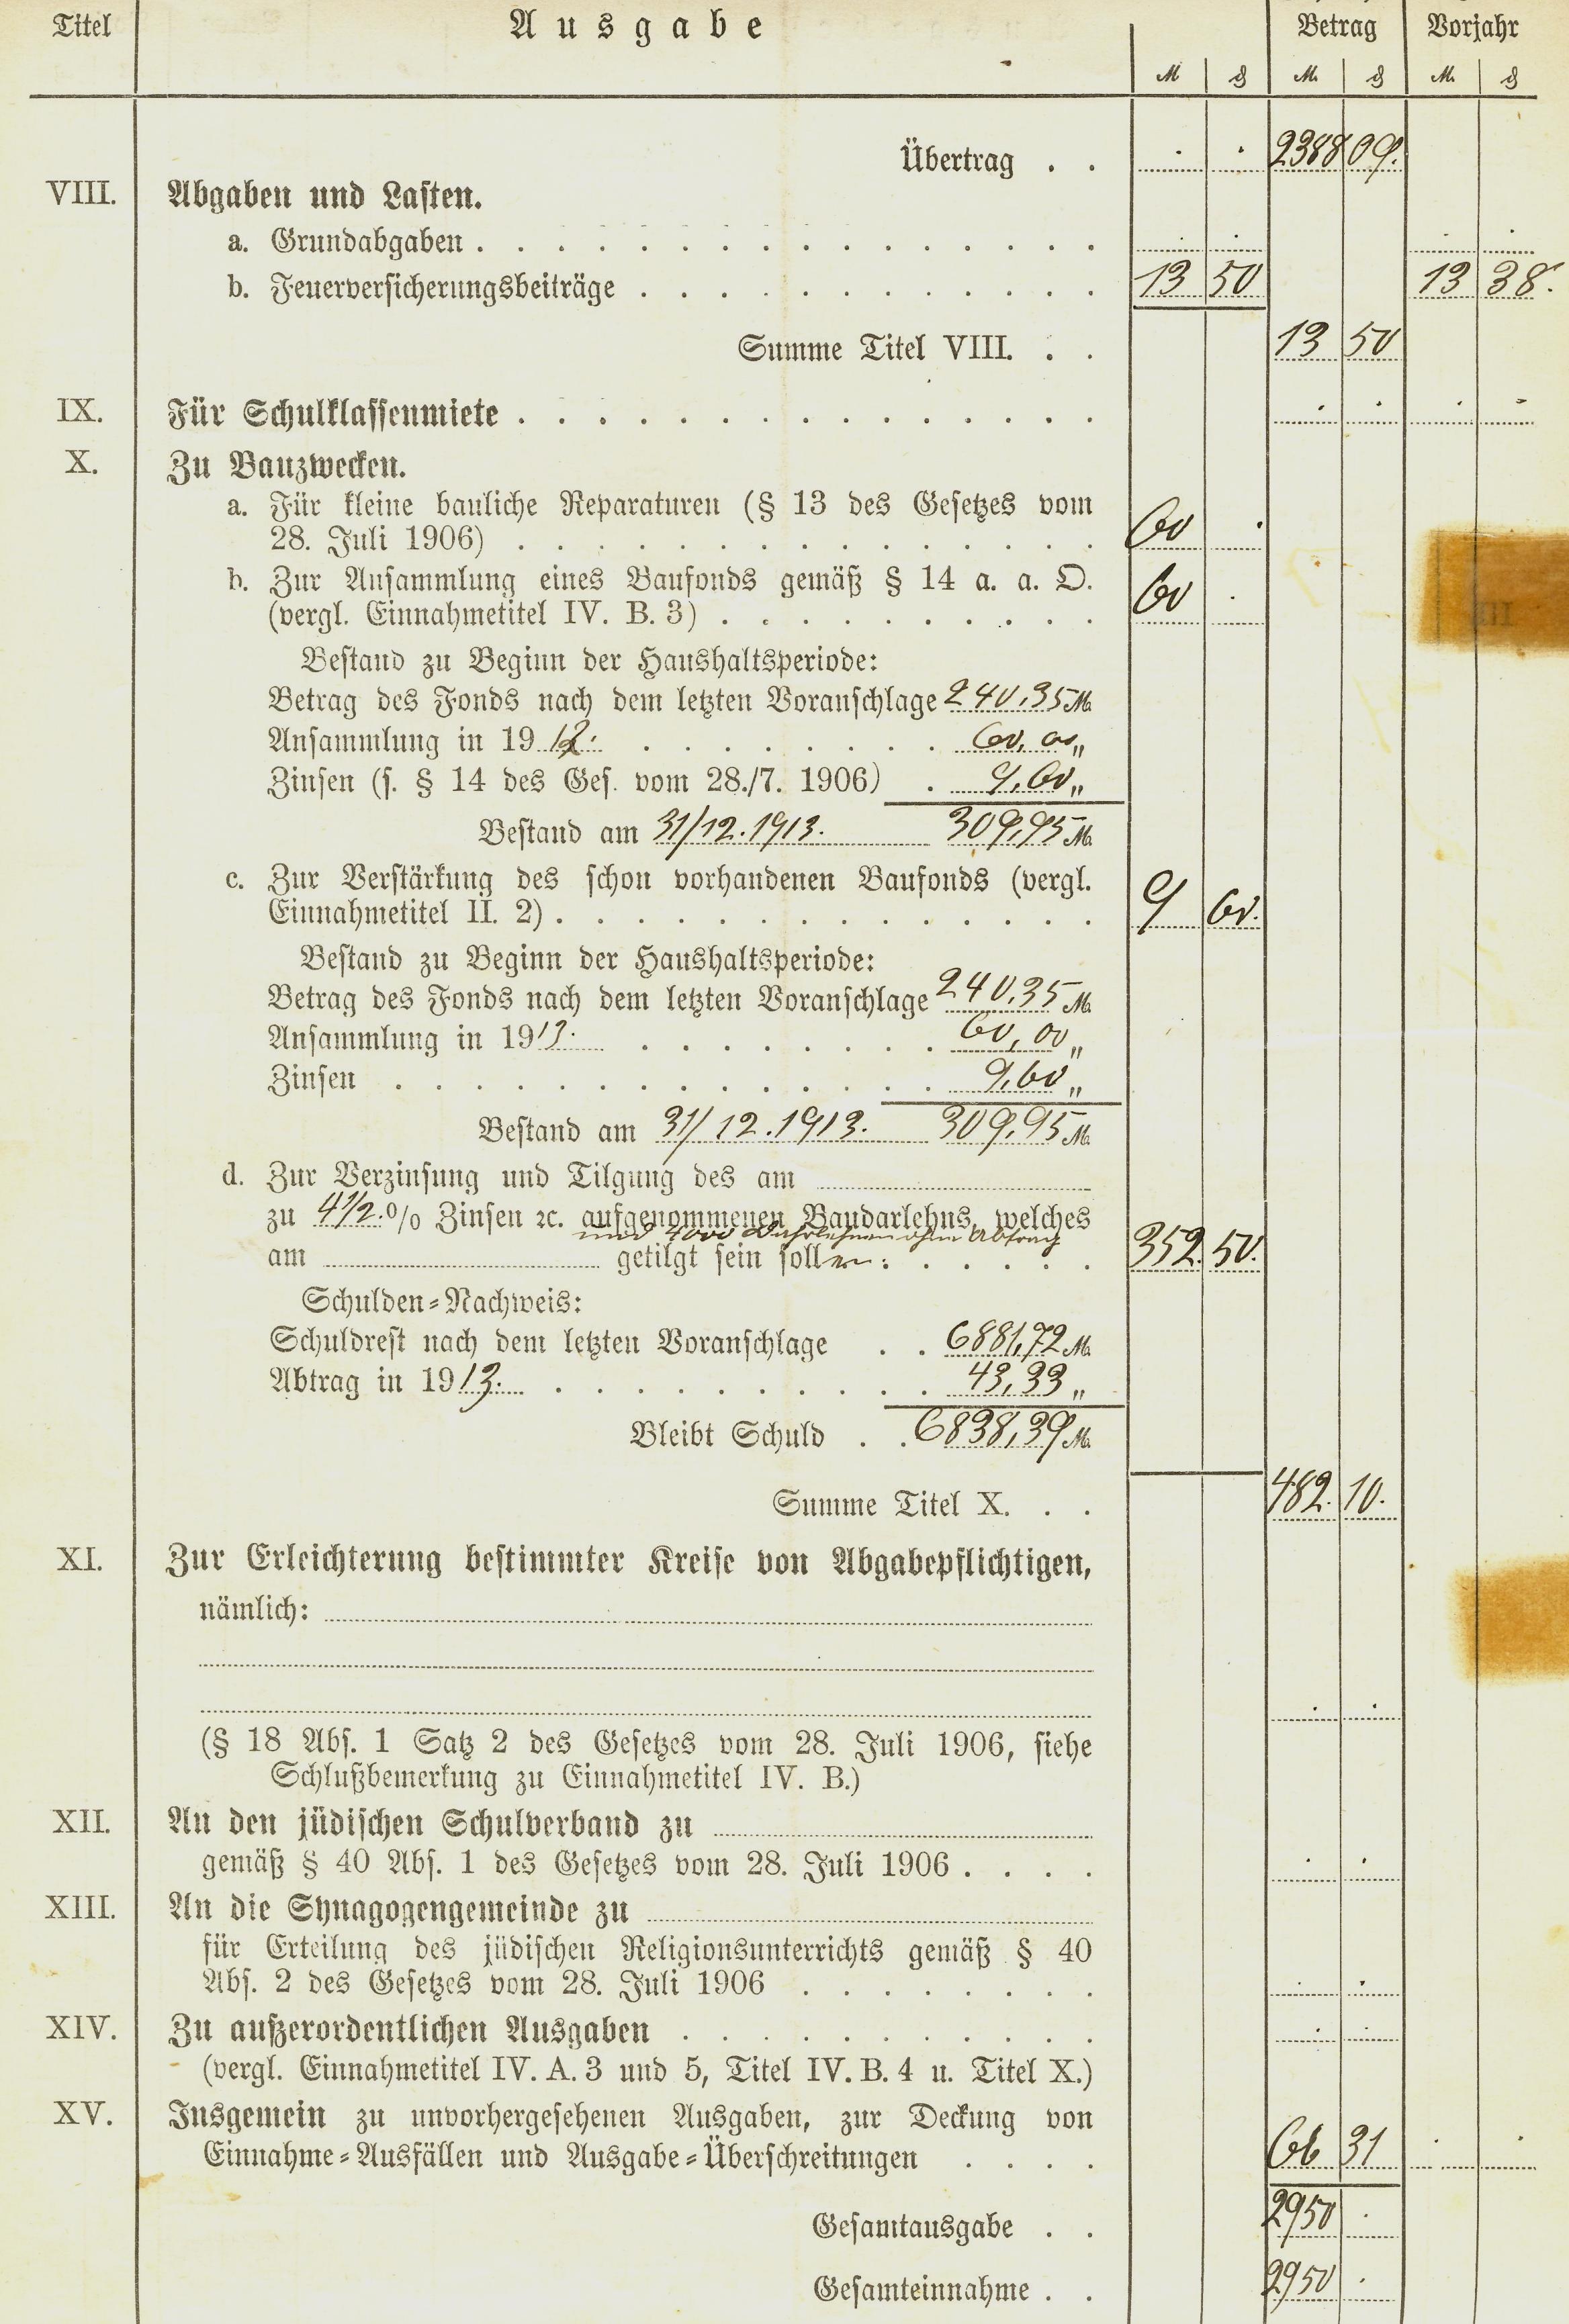 Titel Ausgabe Betrag Vorjahr
M ₰ M. ₰ M. ₰
Übertrag . . 2388 09.
VIII. Abgaben und Lasten.
a. Grundabgaben . . . . . . . . . . . . . . . .
b. Feuerversicherungsbeiträge . . . . . . . . . . . . 13 50 13 38.
Summe Titel VIII. . . 13 50
IX. Für Schulklassenmiete . . . . . . . . . . . . . . .
X. Zu Bauzwecken.
a. Für kleine bauliche Reparaturen (§ 13 des Gesetzes vom
28. Juli 1906) . . . . . . . . . . . . . . . 60 .
b. Zur Ansammlung eines Baufonds gemäß § 14 a. a. O.
(vergl. Einnahmetitel IV. B. 3) . . . . . . . . . . 60 .
Bestand zu Beginn der Haushaltsperiode:
Betrag des Fonds nach dem letzten Voranschlage 240,35 M.
Ansammlung in 19 . . . . . . . . 60,00 „
Zinsen (s. § 14 des Ges. vom 28./7. 1906) . 9,60 „
Bestand am 31/12.1913. 309,95 M.
c. Zur Verstärkung des schon vorhandenen Baufonds (vergl.
Einnahmetitel II. 2) . . . . . . . . . . . . . . 9 60.
Bestand zu Beginn der Haushaltsperiode:
Betrag des Fonds nach dem letzten Voranschlage 240,35 M.
Ansammlung in 1913. . . . . . . . . 60,00 „
Zinsen . . . . . . . . . . . . . . 9,60 „
Bestand am 31/12.1913. 309,95 M.
d. Zur Verzinsung und Tilgung des am
zu 4 1/2 % Zinsen ꝛc. aufgenommenen Baudarlehns, welches
und 4000 ohne Abtrag
am getilgt sein sollen: . . . . . 352. 50.
Schulden-Nachweis:
Schuldrest nach dem letzten Voranschlage . . 6881,72 M.
Abtrag in 1913. . . . . . . . . . . 43,33 „
Bleibt Schuld . . 6838,39 M.
Summe Titel X. . . 482. 10.
XI. Zur Erleichterung bestimmter Kreise von Abgabepflichtigen,
nämlich:
(§ 18 Abs. 1 Satz 2 des Gesetzes vom 28. Juli 1906, siehe
Schlußbemerkung zu Einnahmetitel IV. B.)
XII. An den jüdischen Schulverband zu
gemäß § 40 Abs. 1 des Gesetzes vom 28. Juli 1906 . . . .
XIII. An die Synagogengemeinde zu
für Erteilung des jüdischen Religionsunterrichts gemäß § 40
Abs. 2 des Gesetzes vom 28. Juli 1906 . . . . . . . .
XIV. Zu außerordentlichen Ausgaben . . . . . . . . . . .
(vergl. Einnahmetitel IV. A. 3 und 5, Titel IV. B. 4 u. Titel X.)
XV. Insgemein zu unvorhergesehenen Ausgaben, zur Deckung von
Einnahme-Ausfällen und Ausgabe-Überschreitungen . . . . 66 31
Gesamtausgabe . . 2950 .
Gesamteinnahme . . 2950 .